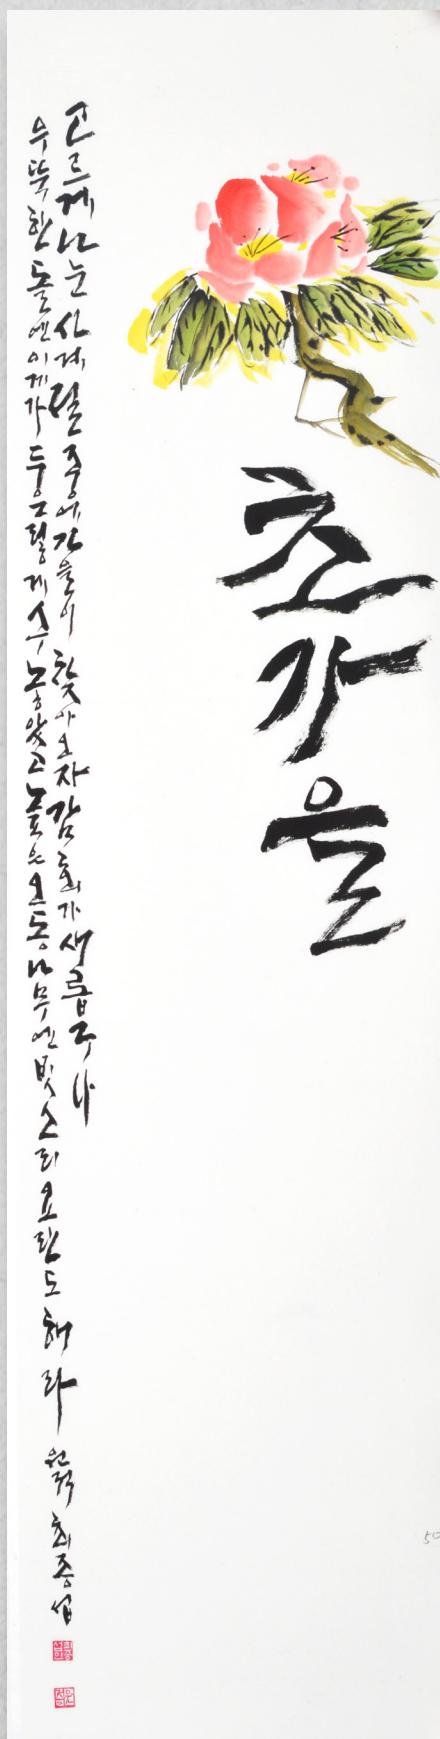 초가을
고르게 나눈 사계절 중에 가을이 찾아오자 감회가 새롭구나
우뚝한 돌엔 이끼가 둥그렇게 수놓았고 높은 오동나무엔 빗소리 요란도 해라 최종
50